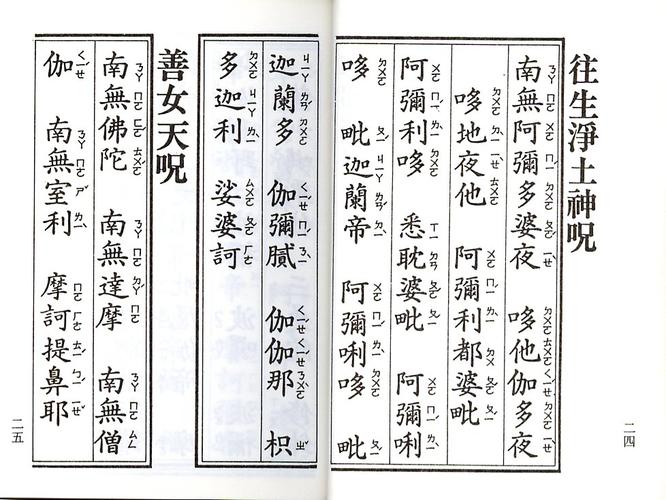 往生淨土神呪
南無阿彌多婆夜　哆他伽多夜
哆地夜他　阿彌利都婆毗
阿彌利哆　悉耽婆毗　阿彌唎
哆　毗迦蘭帝　阿彌唎哆　毗
迦蘭多　伽彌膩　伽伽那　枳
多迦利　娑婆訶
善女天呪
南無佛陀　南無達摩　南無僧
伽　南無室利　摩訶提鼻耶
二四
二五